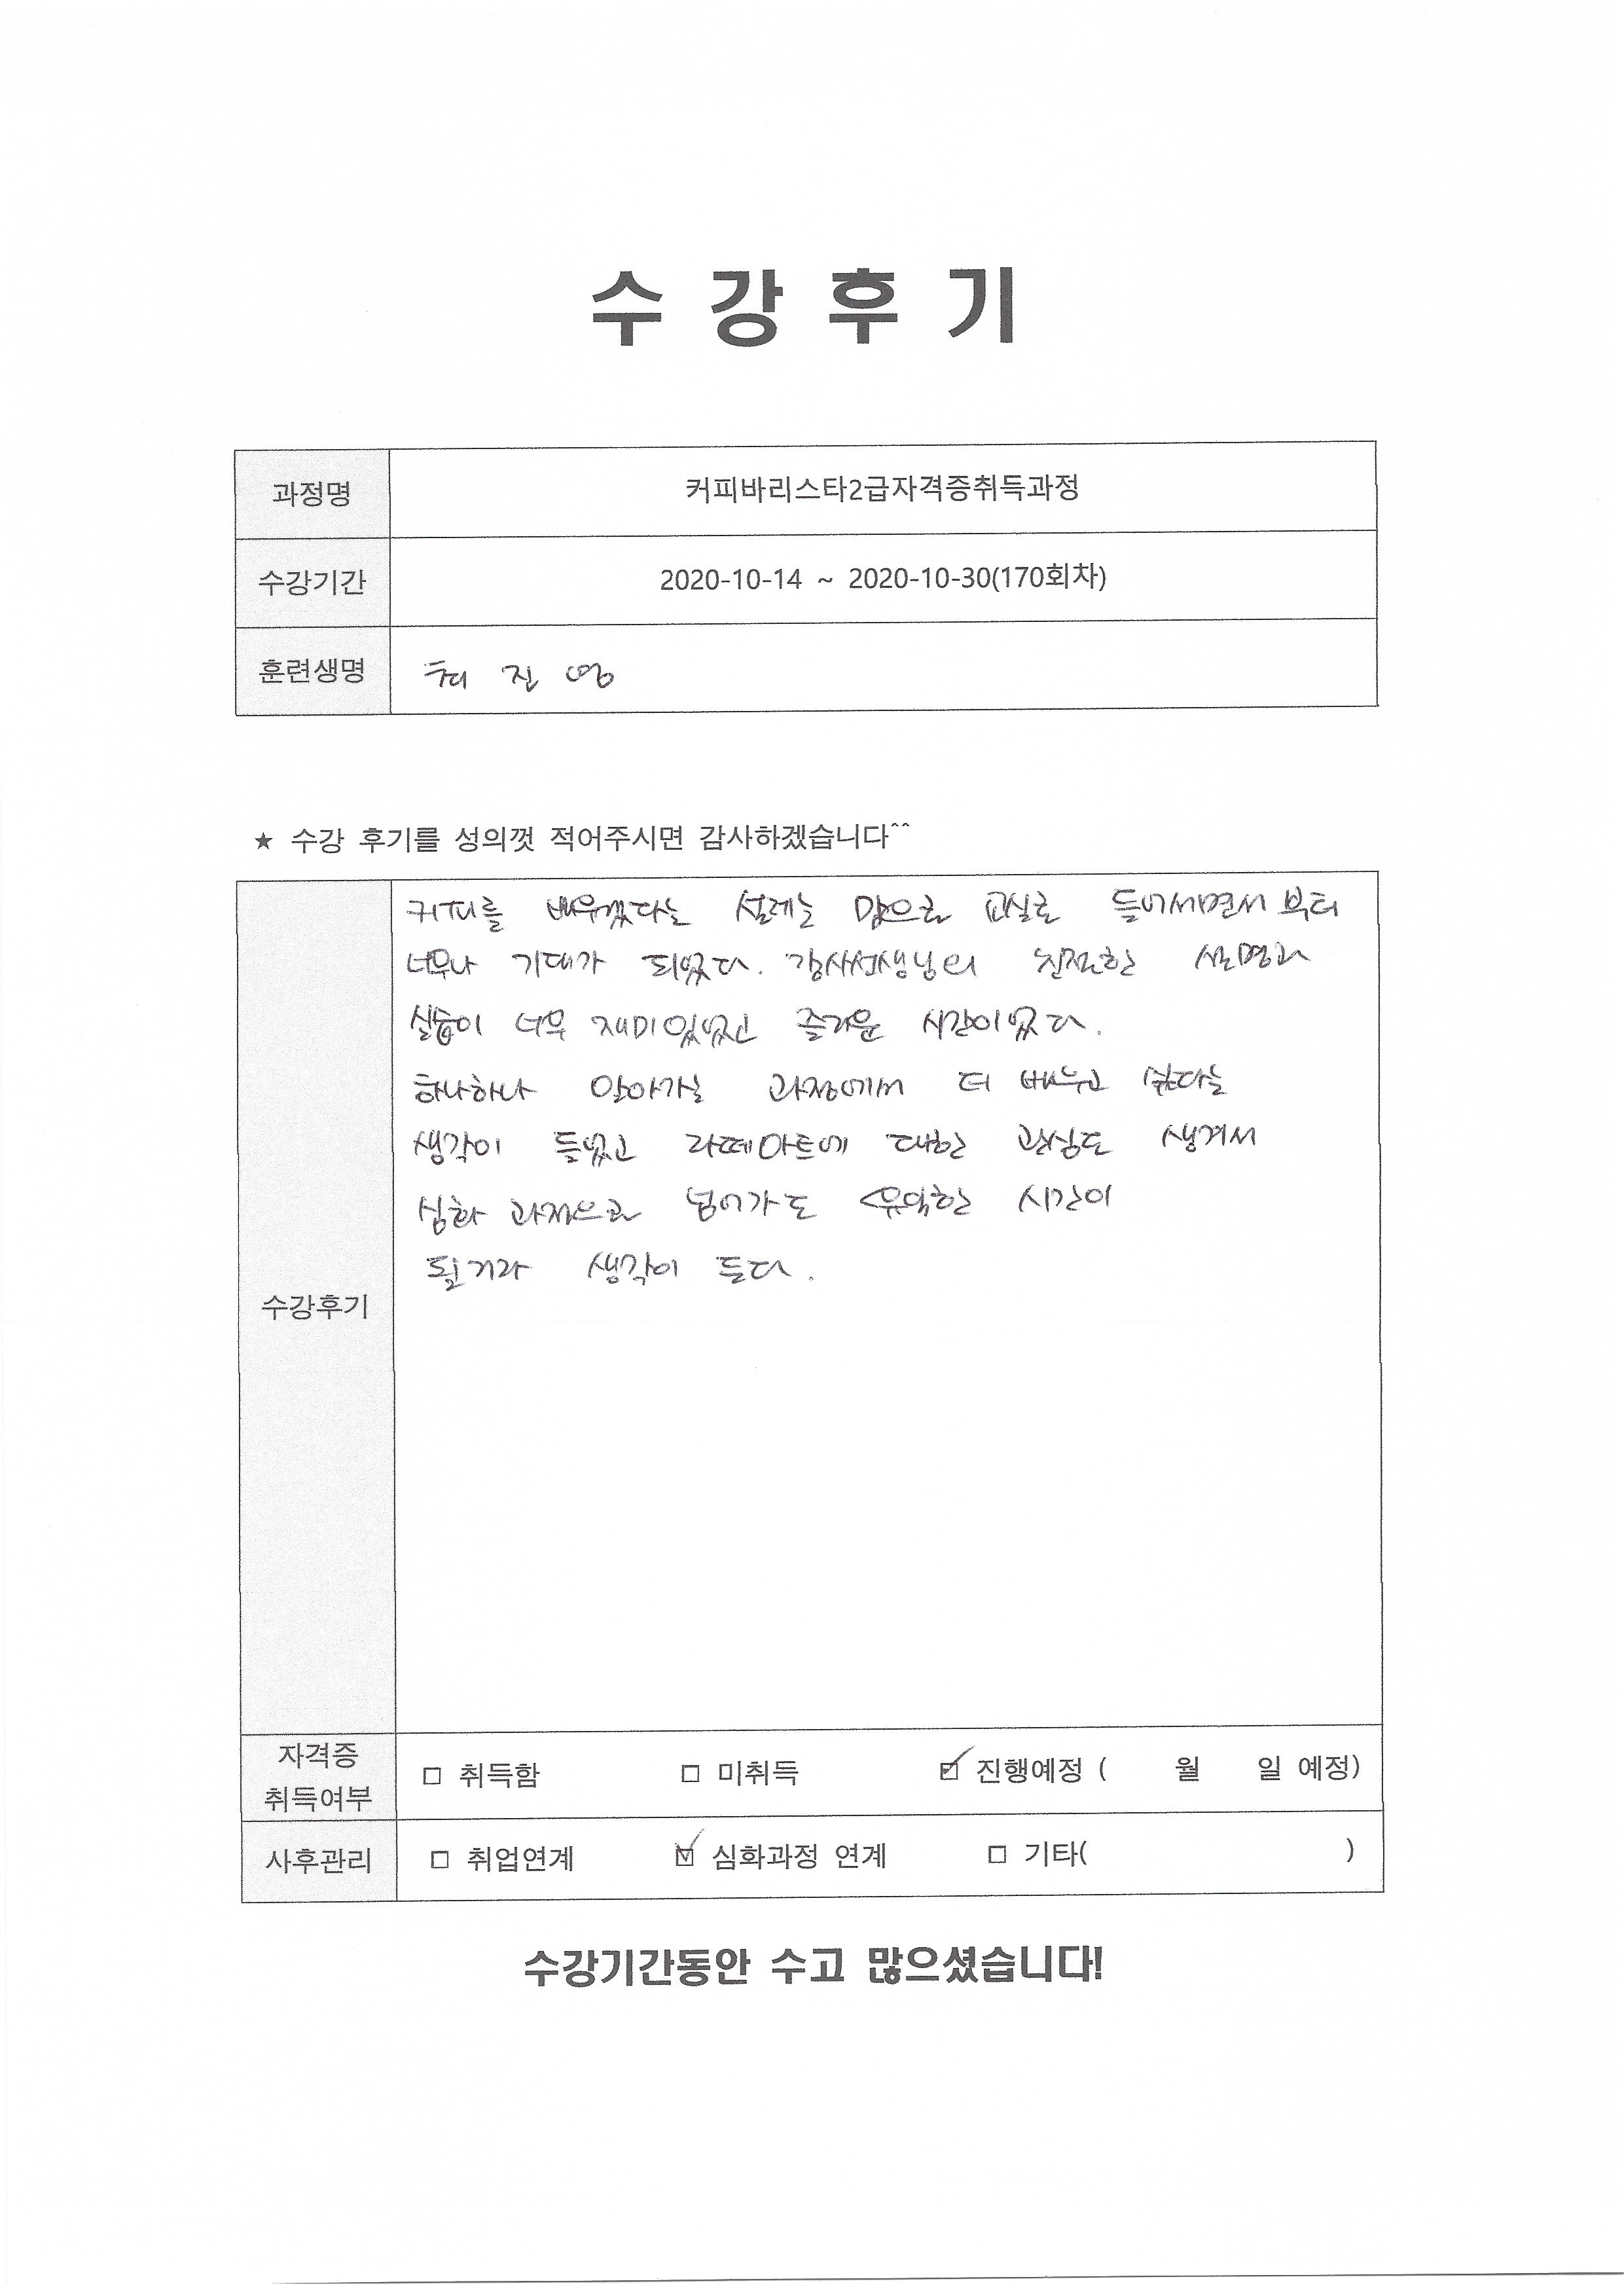 수 강 후 기
과정명 커피바리스타2급자격증취득과정
수강기간 2020-10-14 ~ 2020-10-30(170회차)
훈련생명 최 진 영
★ 수강 후기를 성의껏 적어주시면 감사하겠습니다^^
수강후기
커피를 배우겠다는 설레는 맘으로 교실로 들어서면서 부터
너무나 기대가 되었다. 강사선생님의 친절한 설명과
실습이 너무 재미있었고 즐거운 시간이었다.
하나하나 알아가는 과정에서 더 배우고 싶다는
생각이 들었고 라떼아트에 대한 관심도 생겨서
심화 과정으로 넘어가도 유익한 시간이
될거라 생각이 든다.
자격증 취득여부 □ 취득함 □ 미취득 ☑ 진행예정 ( 월 일 예정)
사후관리 □ 취업연계 ☑ 심화과정 연계 □ 기타( )
수강기간동안 수고 많으셨습니다!